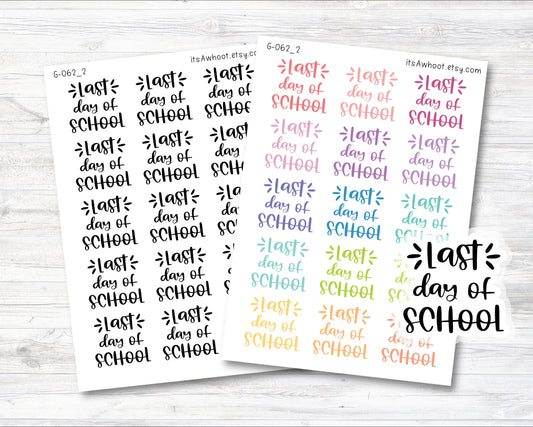 G-062_2
Last
day of
SCHOOL
Last
day of
SCHOOL
Last
day of
Last
day of
SCHOOL
Last
day of
SCHOOL
Last
Last
day of
SCHOOL
Last
day of
SCHOOL
Last
day of
SCHOOL
Last
day of
SCHOOL
Last
day of
SCHOOL
Last
day of
SCHOOL
G-062_2
itsAwhoot.etsy.com
Last
day of
SCHOOL
Last
day of
SCHOOL
Last
day of
SCHOOL
Last
day of
SCHOOL
Last
day of
SCHOOL
Last
day of
SCHOOL
Last
day of
SCHOOL
Last
day of
SCHOOL
Last
day of
SCHOOL
Last
day of
SCHOOL
Last
day of
SCHOOL
Last
day of
SCHOOL
Last
day of
SCHOOL
Last
day of
SCHOOL
Last
day of
SCHOOL